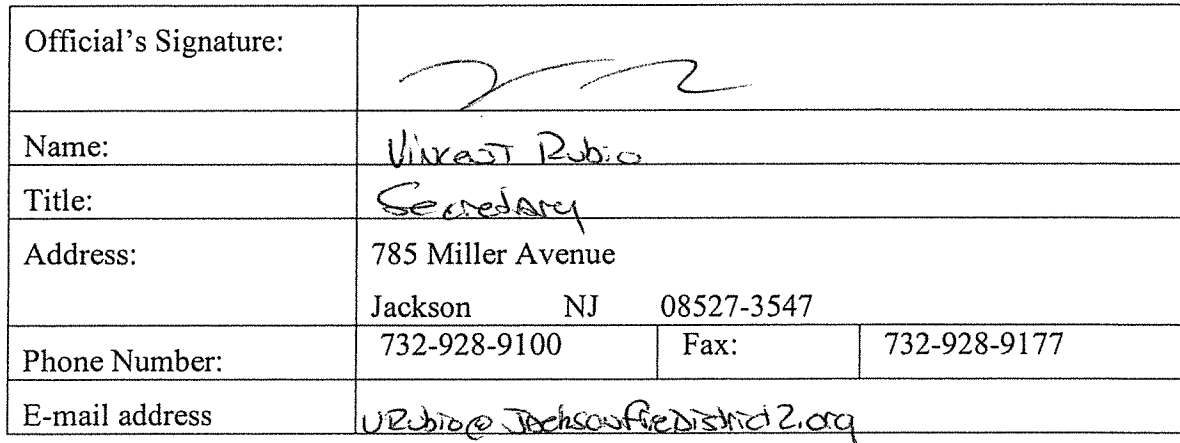 Official's Signature:
Name: Vincent Rubio
Title: Secretary
Address: 785 Miller Avenue
Jackson NJ 08527-3547
Phone Number: 732-928-9100 Fax: 732-928-9177
E-mail address VRubio@JacksonfireDistrict2.org